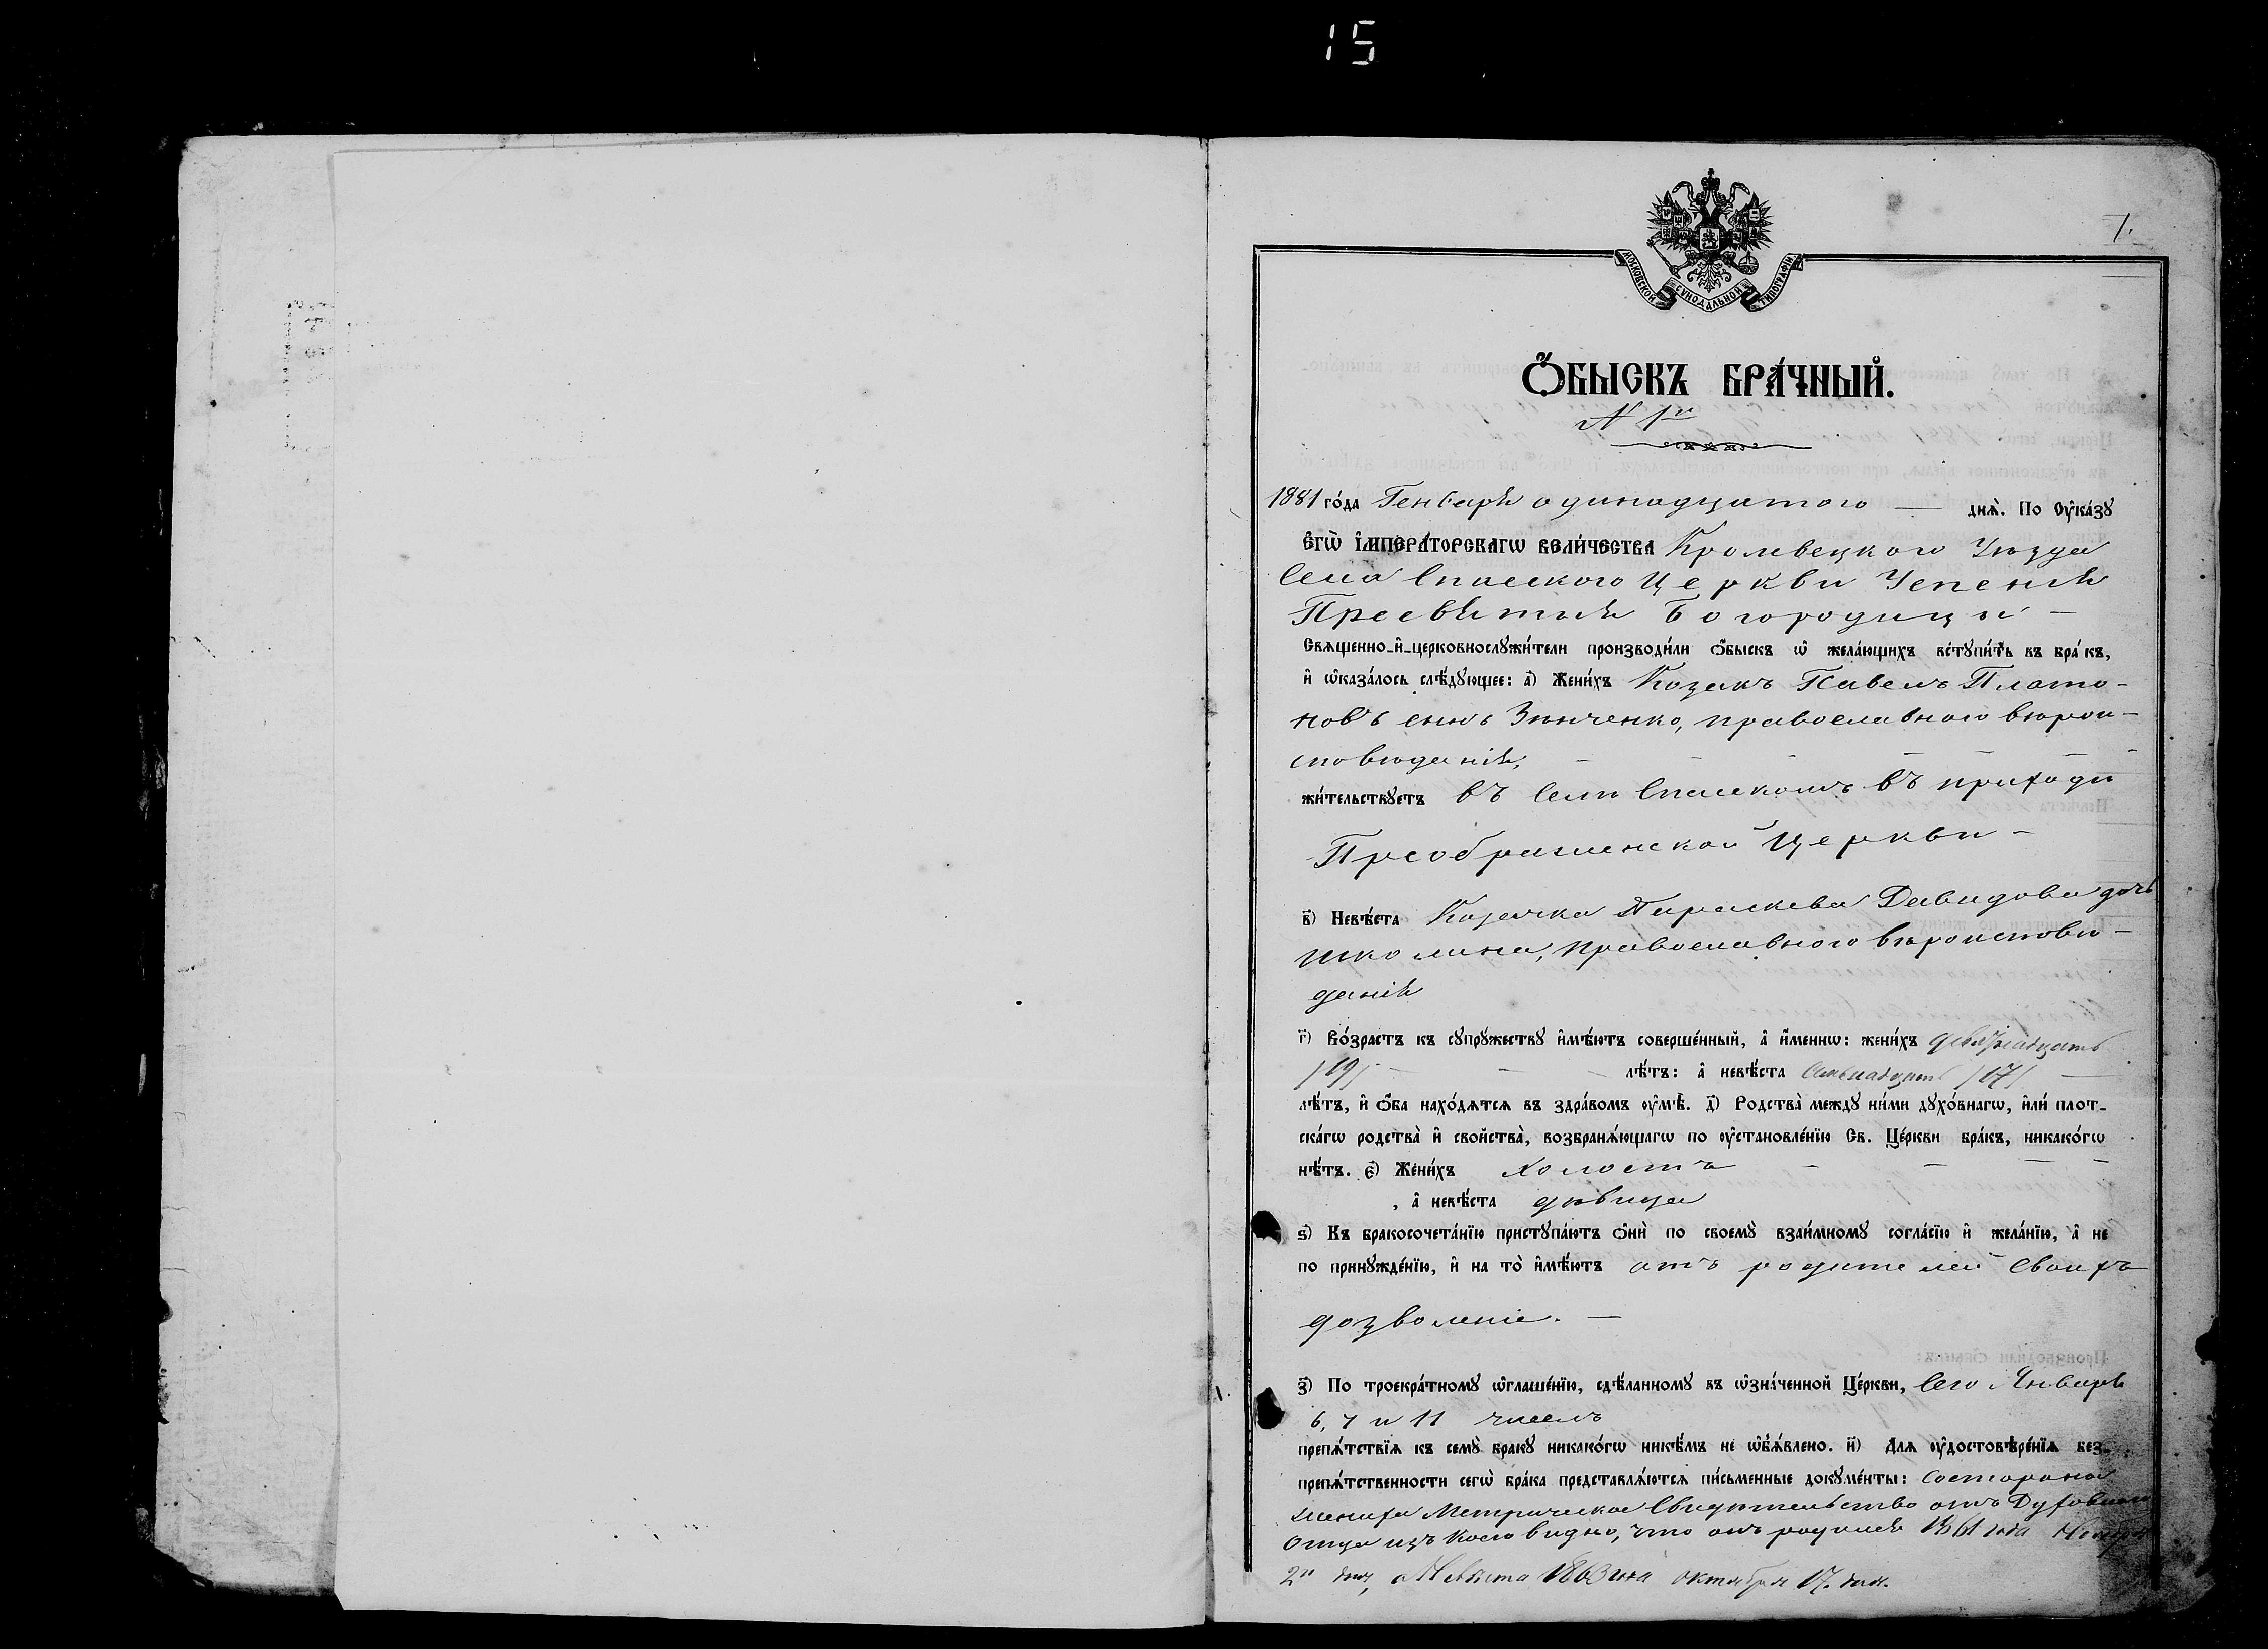 15
1.
МОСКОВСКОЙ СѴНОДАЛЬНОЙ ТИПОГРАФІИ
Ѻ҆БЫСКЪ БРА́ЧНЫЙ.
N 1й
1881 го́да Генваря одинадцатого — днѧ̀. По Оу҆ка́зꙋ
Є҆гѡ̀ І҆МПЕРА́ТОРСКАГѠ ВЕЛИ́ЧЕСТВА Кролевецкого Уѣзда
Села Спаского Церкви Успенія
Пресвятыя Богородицы —
Свѧщенно-и҆-церковнослꙋжи́тели производи́ли ѻ҆́быскъ ѡ҆ жела́ющихъ встꙋпи́ть въ бра́къ,
и҆ ѡ҆каза́лось слѣ́дꙋющее: а҃) Жени́хъ Козакъ Павелъ Плато-
новъ сынъ Зинченко, православного вѣрои-
сповѣданія, — — — — —
жи́тельствꙋетъ въ Селѣ Спаскомъ въ приходѣ
Преображенской Церкви —
в҃) Невѣ́ста Козачка Параскева Давидова дочь
православного вѣроисповѣ-
данія
г҃) Во́зрастъ къ сꙋпрꙋ́жествꙋ и҆мѣ́ютъ соверше́нный, а҆ и҆́меннѡ: жени́хъ девятнадцать
/19/ — — — лѣ́тъ: а҆ невѣ́ста Семнадцать /17/ —
лѣ́тъ, и҆ ѻ҆́ба нахо́дѧтсѧ въ здра́вомъ оу҆мѣ̀. д҃) Родства̀ междꙋ̀ ни́ми дꙋхо́внагѡ, и҆лѝ плот-
ска́гѡ родства̀ и҆ сво́йства̀, возбранѧ́ющагѡ по оу҆становле́нїю Св. Це́ркви бра́къ, никако́гѡ
нѣ́тъ. є҃) Жени́хъ холостъ — — — —
, а҆ невѣ́ста дѣвица
ѕ҃) Къ бракосочета́нїю пристꙋпа́ютъ ѻ҆нѝ по своемꙋ̀ взаи́мномꙋ согла́сїю и҆ жела́нїю, а҆ не
по принꙋжде́нїю, и҆ на то̀ и҆мѣ́ютъ отъ родителей Своихъ
дозволеніе. —
з҃) По троекра́тномꙋ ѡ҆глаше́нїю, сдѣ́ланномꙋ въ ѡ҆зна́ченной Це́ркви, Сего Января
6, 7 и 11 числъ
препѧ́тствїѧ къ семꙋ̀ бракꙋ̀ никако́гѡ никѣ́мъ не ѡ҆б̾ѧ́влено. и҃) Длѧ оу҆достовѣре́нїѧ без-
препѧ́тственности сегѡ̀ бра́ка представлѧ́ютсѧ пи́сьменные докꙋме́нты: Состороны
жениха Метрическое Свидѣтельство отъ Духовного
Отца изъ коего видно, что онъ родился 1861 года Ноября
2го дня, а Невѣста 1863 года октября 17. дня.